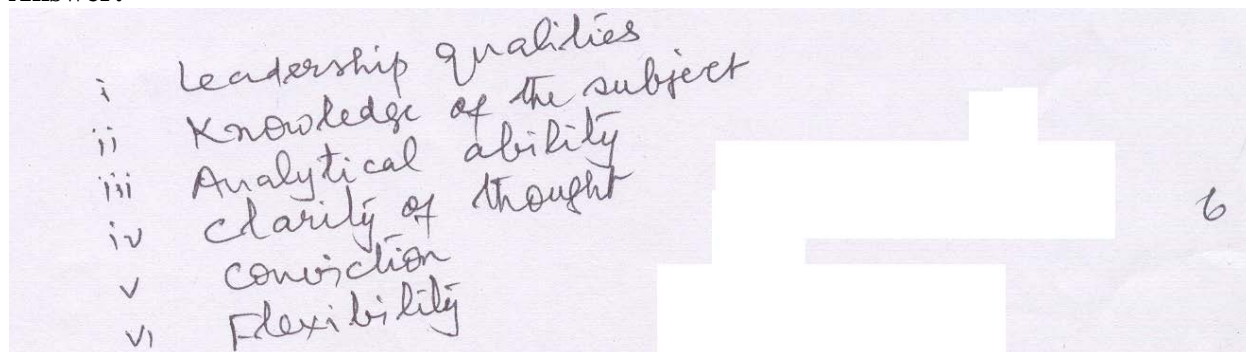 i Leadership qualities
ii Knowledge of the subject
iii Analytical ability
iv clarity of thought
v conviction
vi Flexibility
6